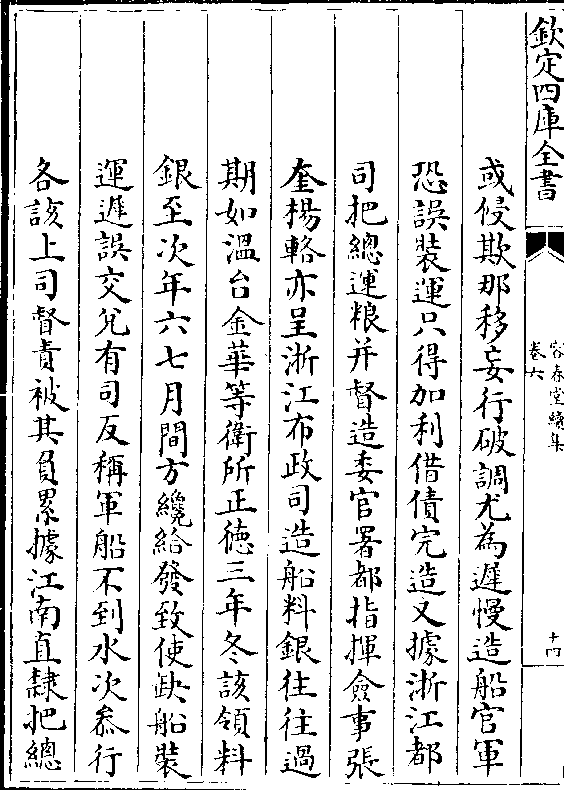 欽定四庫全書
容春堂續集
卷六
十四
或侵欺那移妄行破調尤為遲慢造船官軍
恐誤裝運只得加利借債完造又據浙江都
司把總運粮并督造委官署都指揮僉事張
奎楊輅亦呈浙江布政司造船料銀往往過
期如溫台金華等衛所正徳三年冬該領料
銀至次年六七月間方纔給發致使缺船裝
運遲誤交兌有司反稱軍船不到水次叅行
各該上司督責被其負累據江南直隸把總